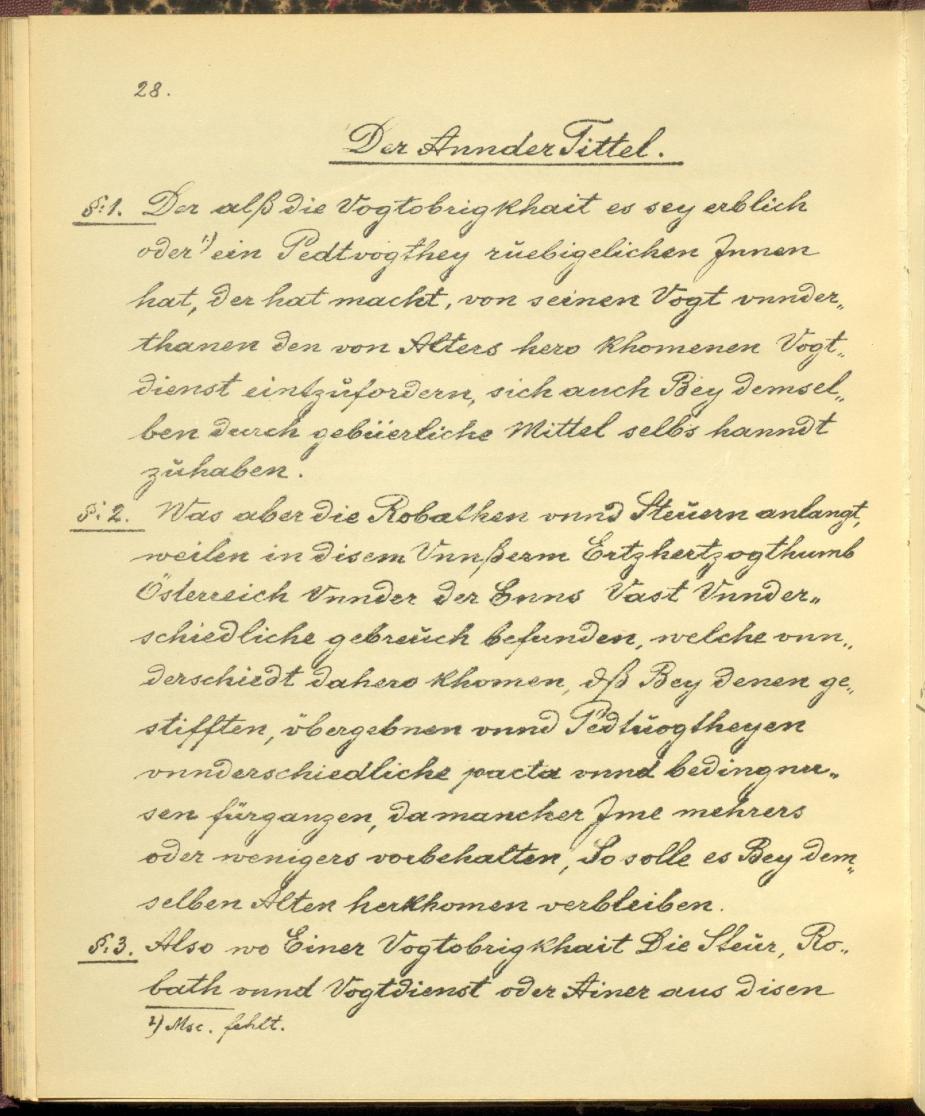 28.
Der Annder Tittel.
§: 1. Der alß die Vogtobrigkhait es sey erblich
oder 1) ein Pedtvogthey rŭebigelichen Jnnen
hat, der hat macht, von seinen Vogt vnnder„
thanen den von Alters hero khomenen Vogt„
dienst eintzŭfordern, sich auch Bey demsel„
ben durch gebüerliche Mittel selbs hanndt
zŭhaben.
§: 2. Was aber die Robathen vnnd Steŭern anlangt,
weilen in disem Vnnßerm Ertzhertzogthumb
Österreich Vnnder der Enns Vast Vnnder„
schiedliche gebreŭch befunden, welche vnn„
derschiedt dahero khomen, dß Bey denen ge„
stifften, öbergebnen vnnd Pedtŭogtheyen
vnnderschiedliche pacta vnnd bedingnu„
sen fürganzen, da mancher Jme mehrers
oder wenigers vorbehalten, So solle es Bey dem„
selben Alten herkhomen verbleiben.
§: 3. Also wo Einer Vogtobrigkhait Die Steŭr, Ro„
bath vnnd Vogtdienst oder Ainer aus disen
1) Msc. fehlt.